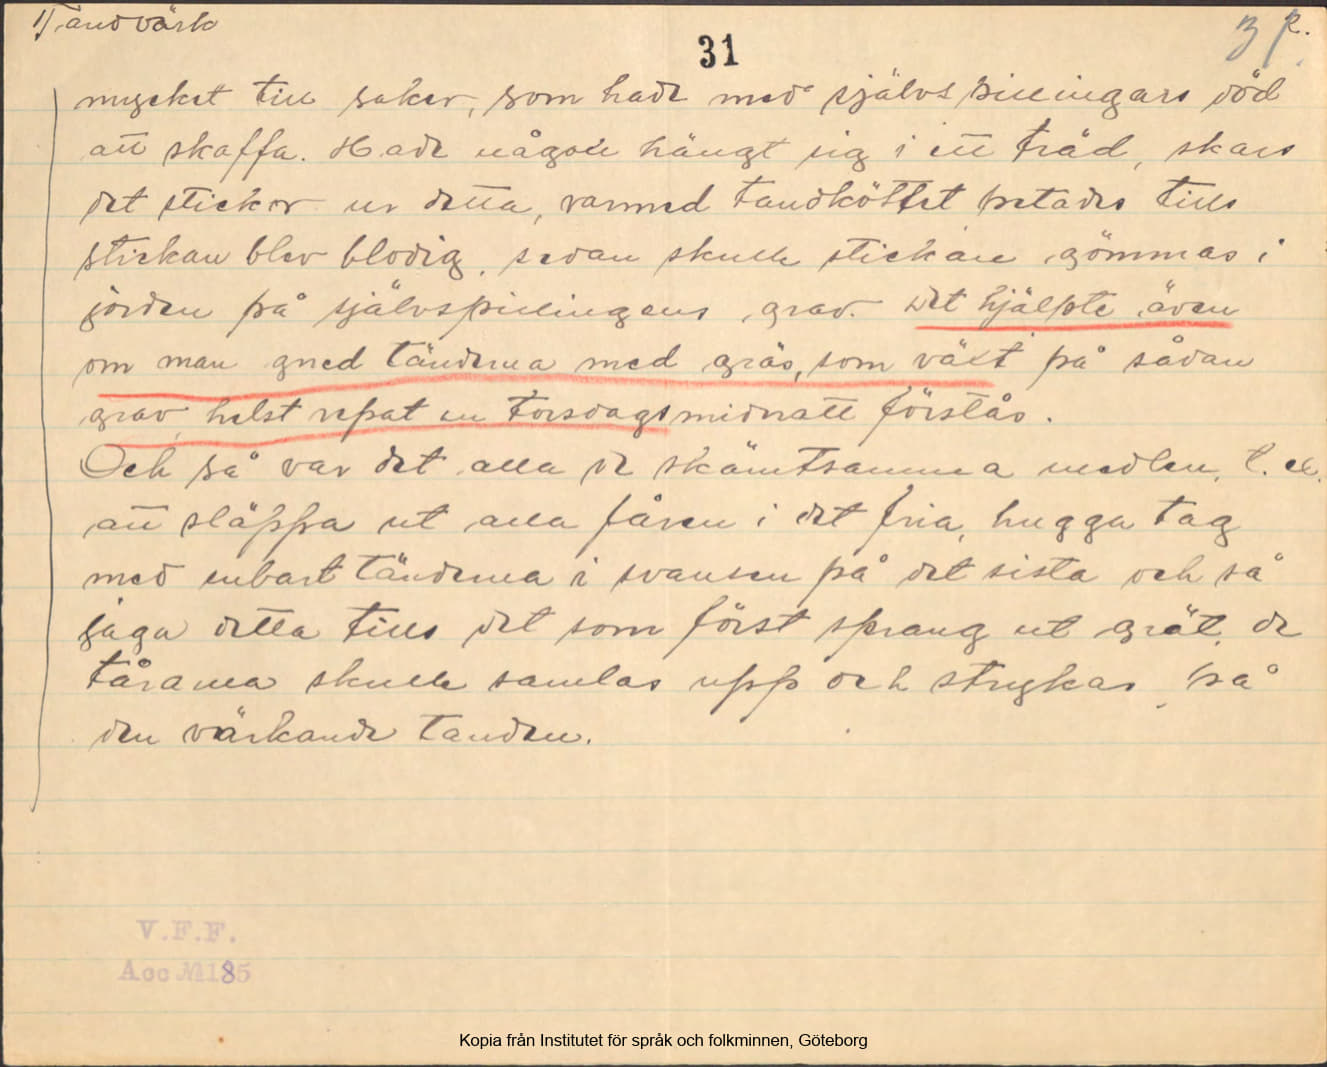 1) Tandvärk
31
mycket till saker, som hade med självspillingars död
att skaffa. Hade någon hängt sig i ett träd, skars
det stickor ur detta, varmed tandköttet petades tills
stickan blev blodig. sedan skulle stickan gömmas i
jorden på självspillingens grav. Det hjälpte även
om man gned tänderna med gräs, som växt på sådan
grav, helst repat en torsdagsmidnatt förstås.
Och så var det alla de skämtsamma medlen, t. ex.
att släppa ut alla fåren i det fria, hugga tag
med enbart tänderna i svansen på det sista och så
jaga detta tills det som först sprang ut grät. de
tårarna skulle samlas upp och strykas på
den värkande tanden.
V.F.F.
Acc № 185
Kopia från Institutet för språk och folkminnen, Göteborg